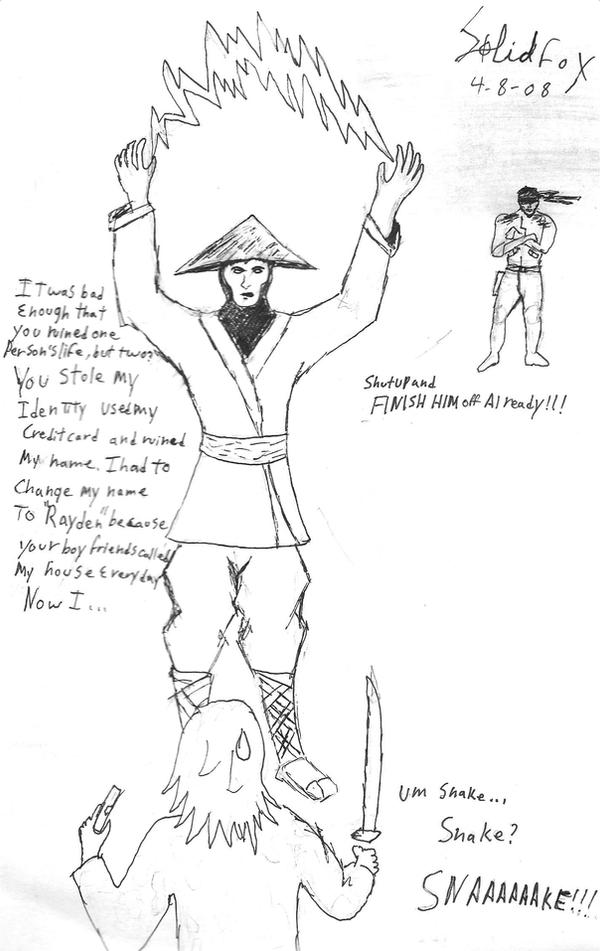 SolidFox
4-8-08
IT was bad
Enough that
you ruined one
Person's life, but two?
You stole my
Identity used my
Credit card and ruined
My name. I had to
Change my name
To "Rayden" because
your boy friends called
My house Everyday
Now I...
Shutup and
FINISH HIM off Already!!!
um Snake...
Snake?
SNAAAAAAKE!!!